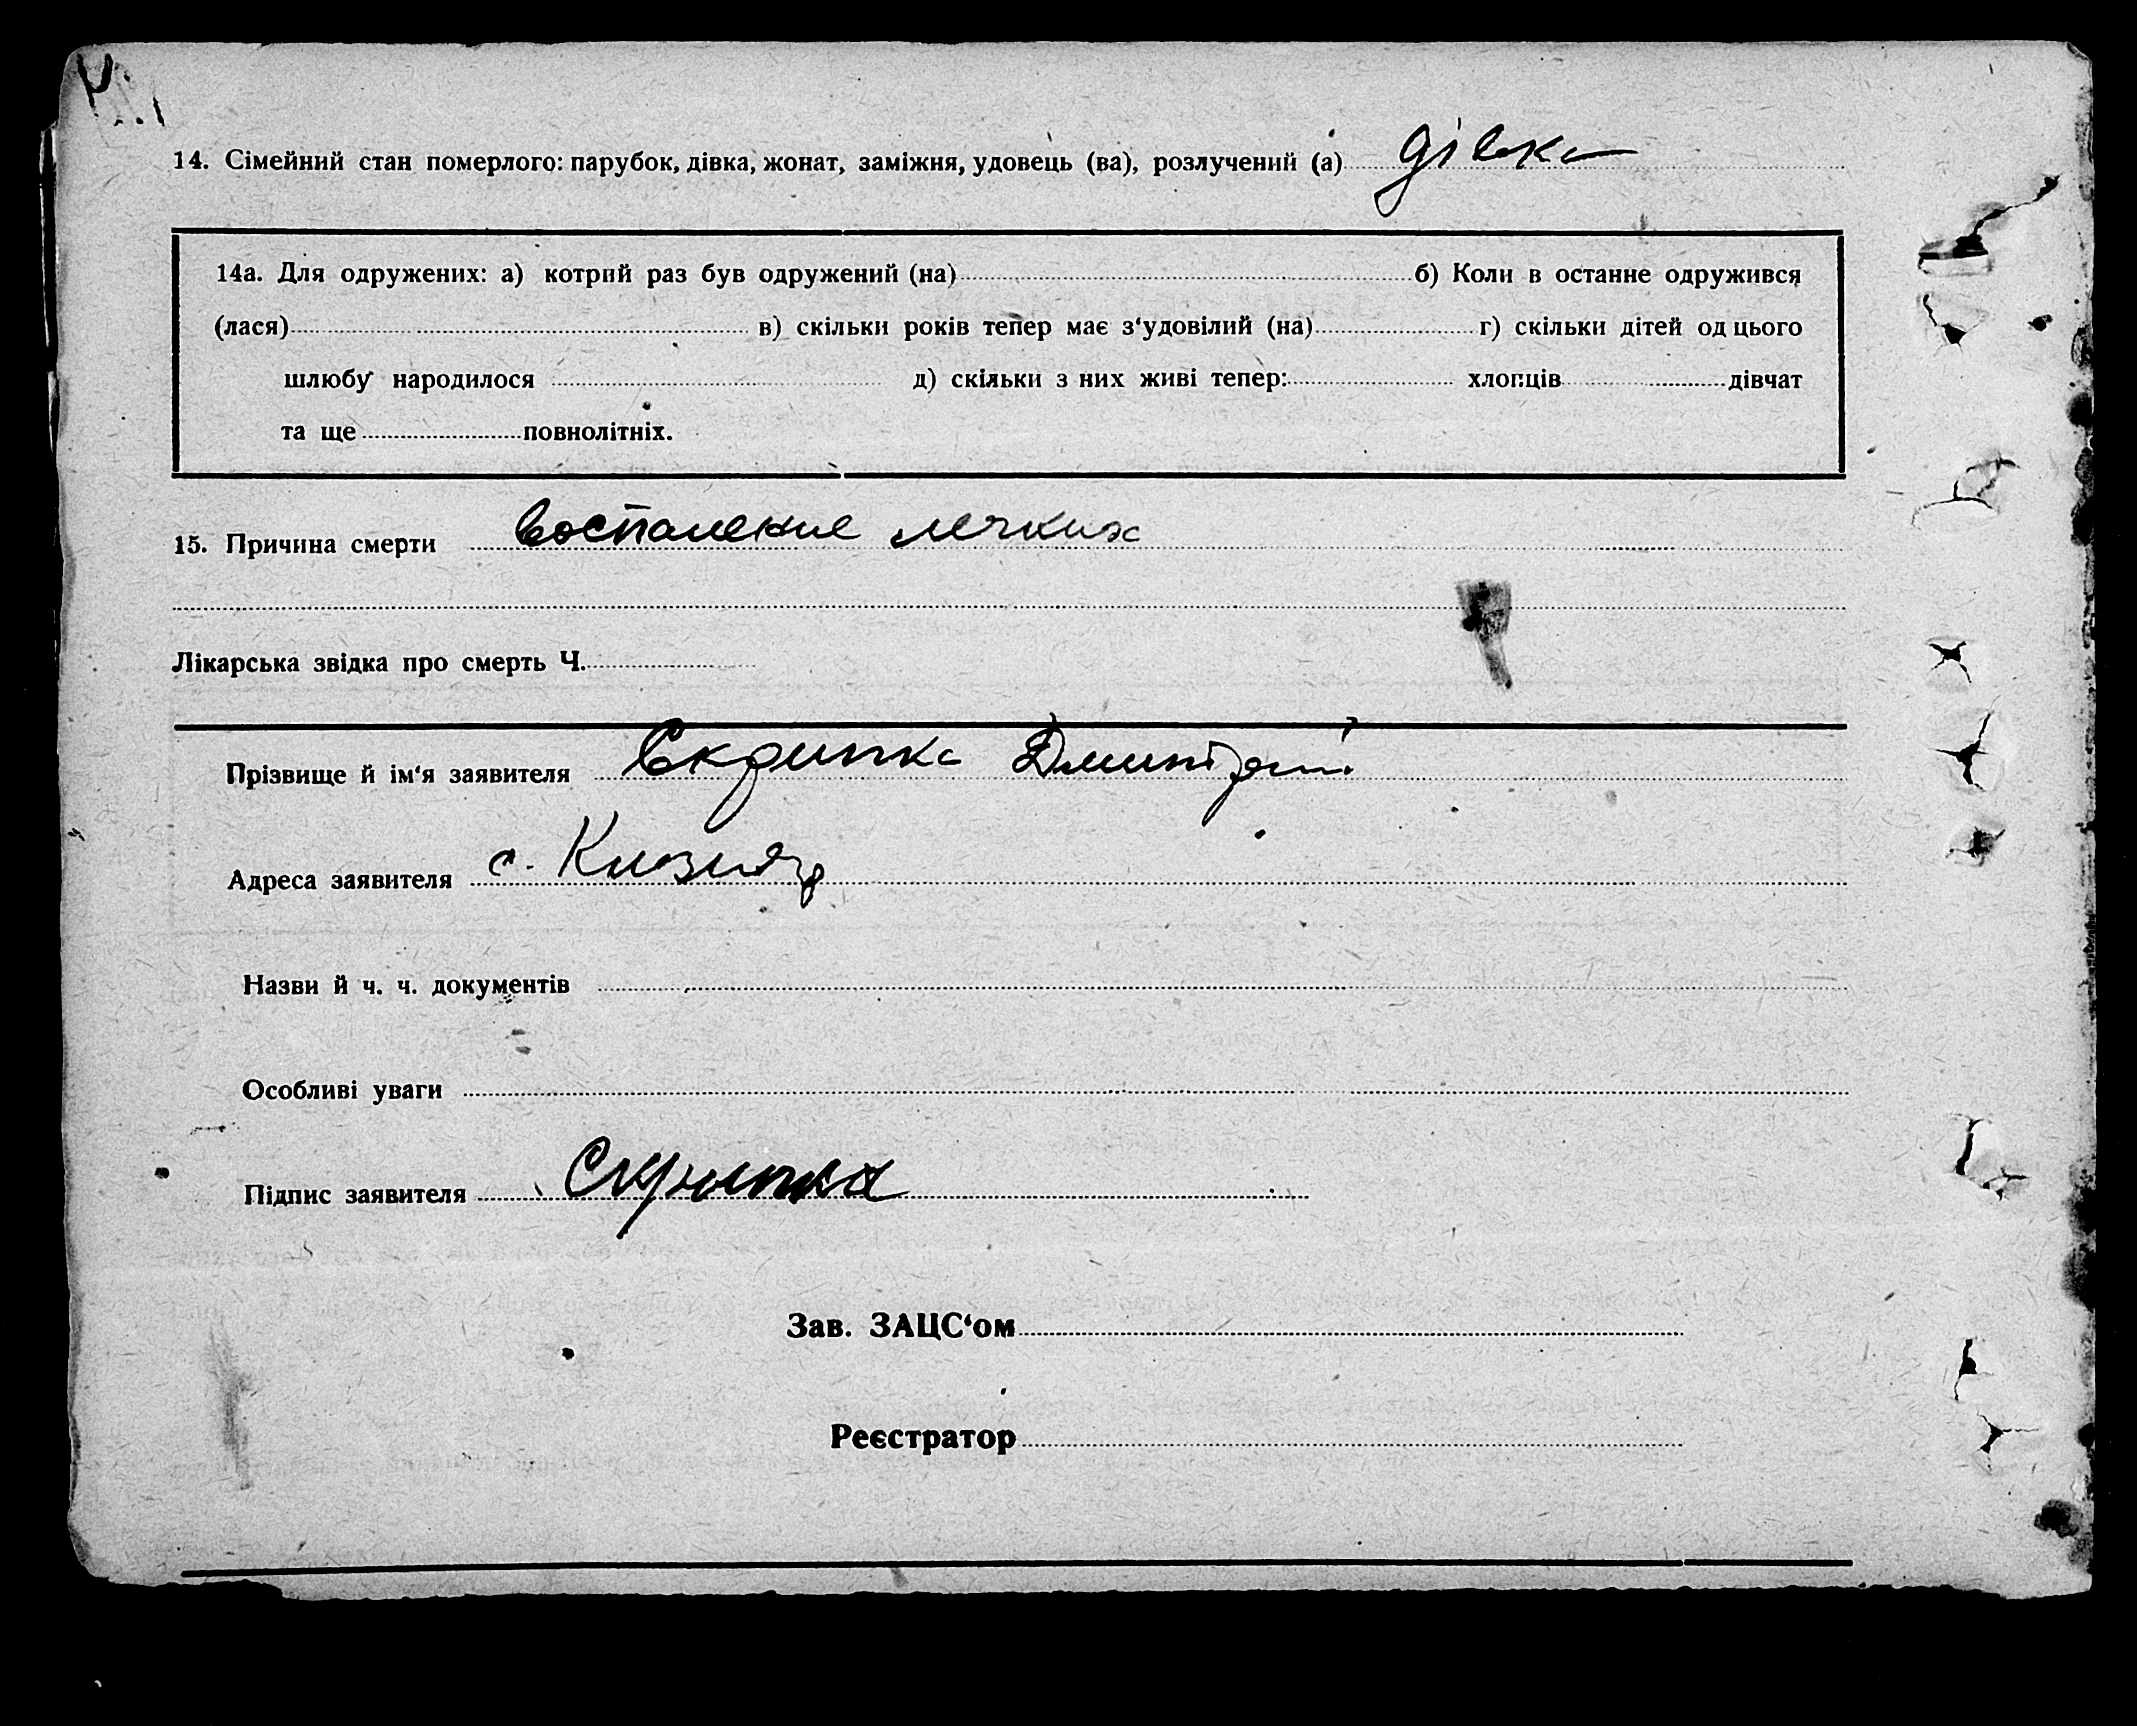 14. Сімейний стан померлого: парубок, дівка, жонат, заміжня, удовець (ва), розлучений (а) дівка
14а. Для одружених: а) котрий раз був одружений (на) б) Коли в останне одружився
(лася) в) скільки років тепер має з‘удовілий (на) г) скільки дітей од цього
шлюбу народилося д) скільки з них живі тепер: хлопців дівчат
та ще повнолітніх.
15. Причина смерти воспаление легких
Лікарська звідка про смерть Ч.
Прізвище й ім‘я заявителя Скрипка Дмитрий
Адреса заявителя с. Кизияр
Назви й ч. ч. документів
Особливі уваги
Підпис заявителя Скрипка
Зав. ЗАЦС‘ом
Реєстратор